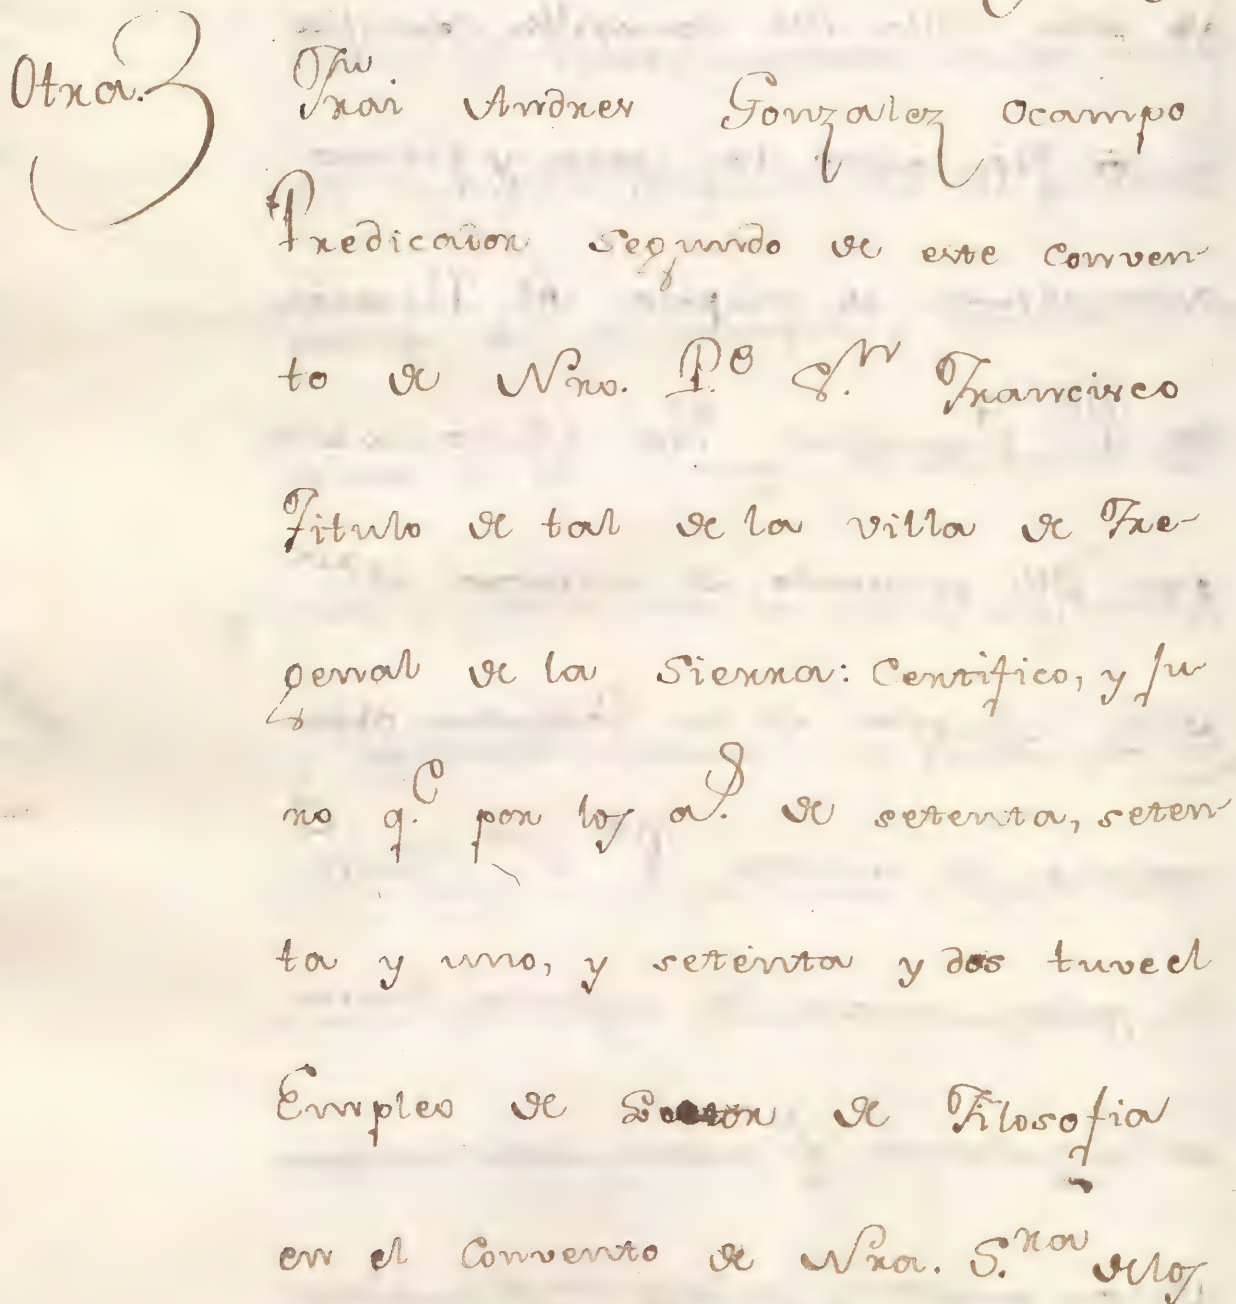 Otra.
Frai Andres Gonzalez Ocampo
Predicador segundo de este conven-
to de Nro. P.e S.n Francisco
Titulo de tal de la villa de Fre-
genal de la Sierra: Certifico, y ju-
ro q.e por los a.s de setenta, seten-
ta y uno, y setenta y dos tuve el
Empleo de Lector de Filosofia
en el Convento de Nra. S.ra de los